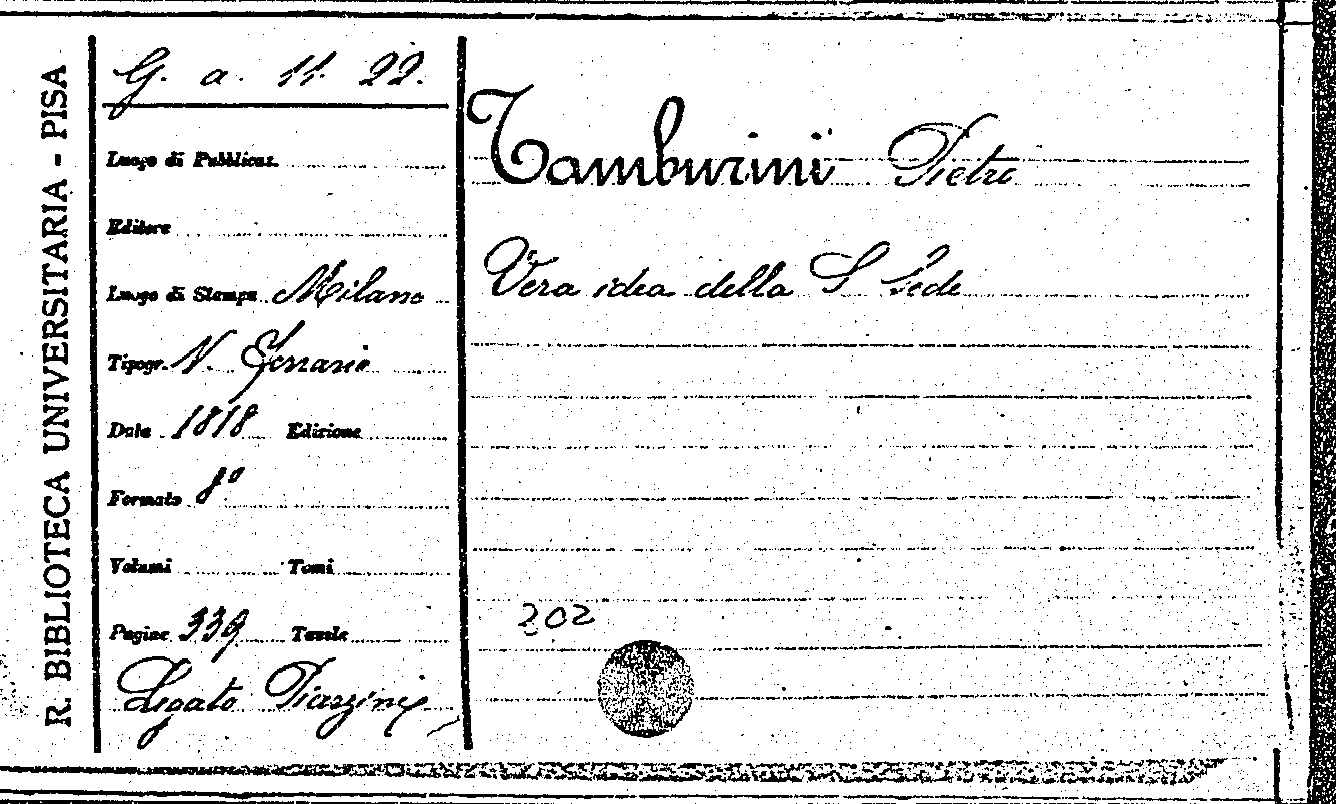 R. BIBLIOTECA UNIVERSITARIA - PISA
G. a. 11. 22.
Luogo di Pubblicaz.
Editore
Luogo di Stampa Milano
Tipogr. N. Ferrario
Data 1818 Edizione
Formato 8º
Volumi Tomi
Pagine 339 Tavole
Legato Piazzini
Tamburini Pietro
Vera idea della S Sede
202